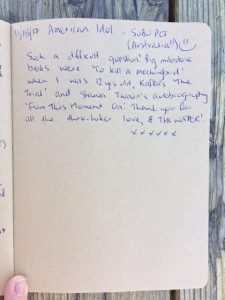 11/15/17 American Idol - SOBO PCT
(Australia!!)
Such a difficult question! Big milestone
books were 'To kill a mockingbird'
when I was 12 yrs old, Kafka's 'The
Trial' and Shania Twain's autobiography
'From This Moment On'. Thank you for
all the thru-hiker love, & THE WATER!
xxxxxx